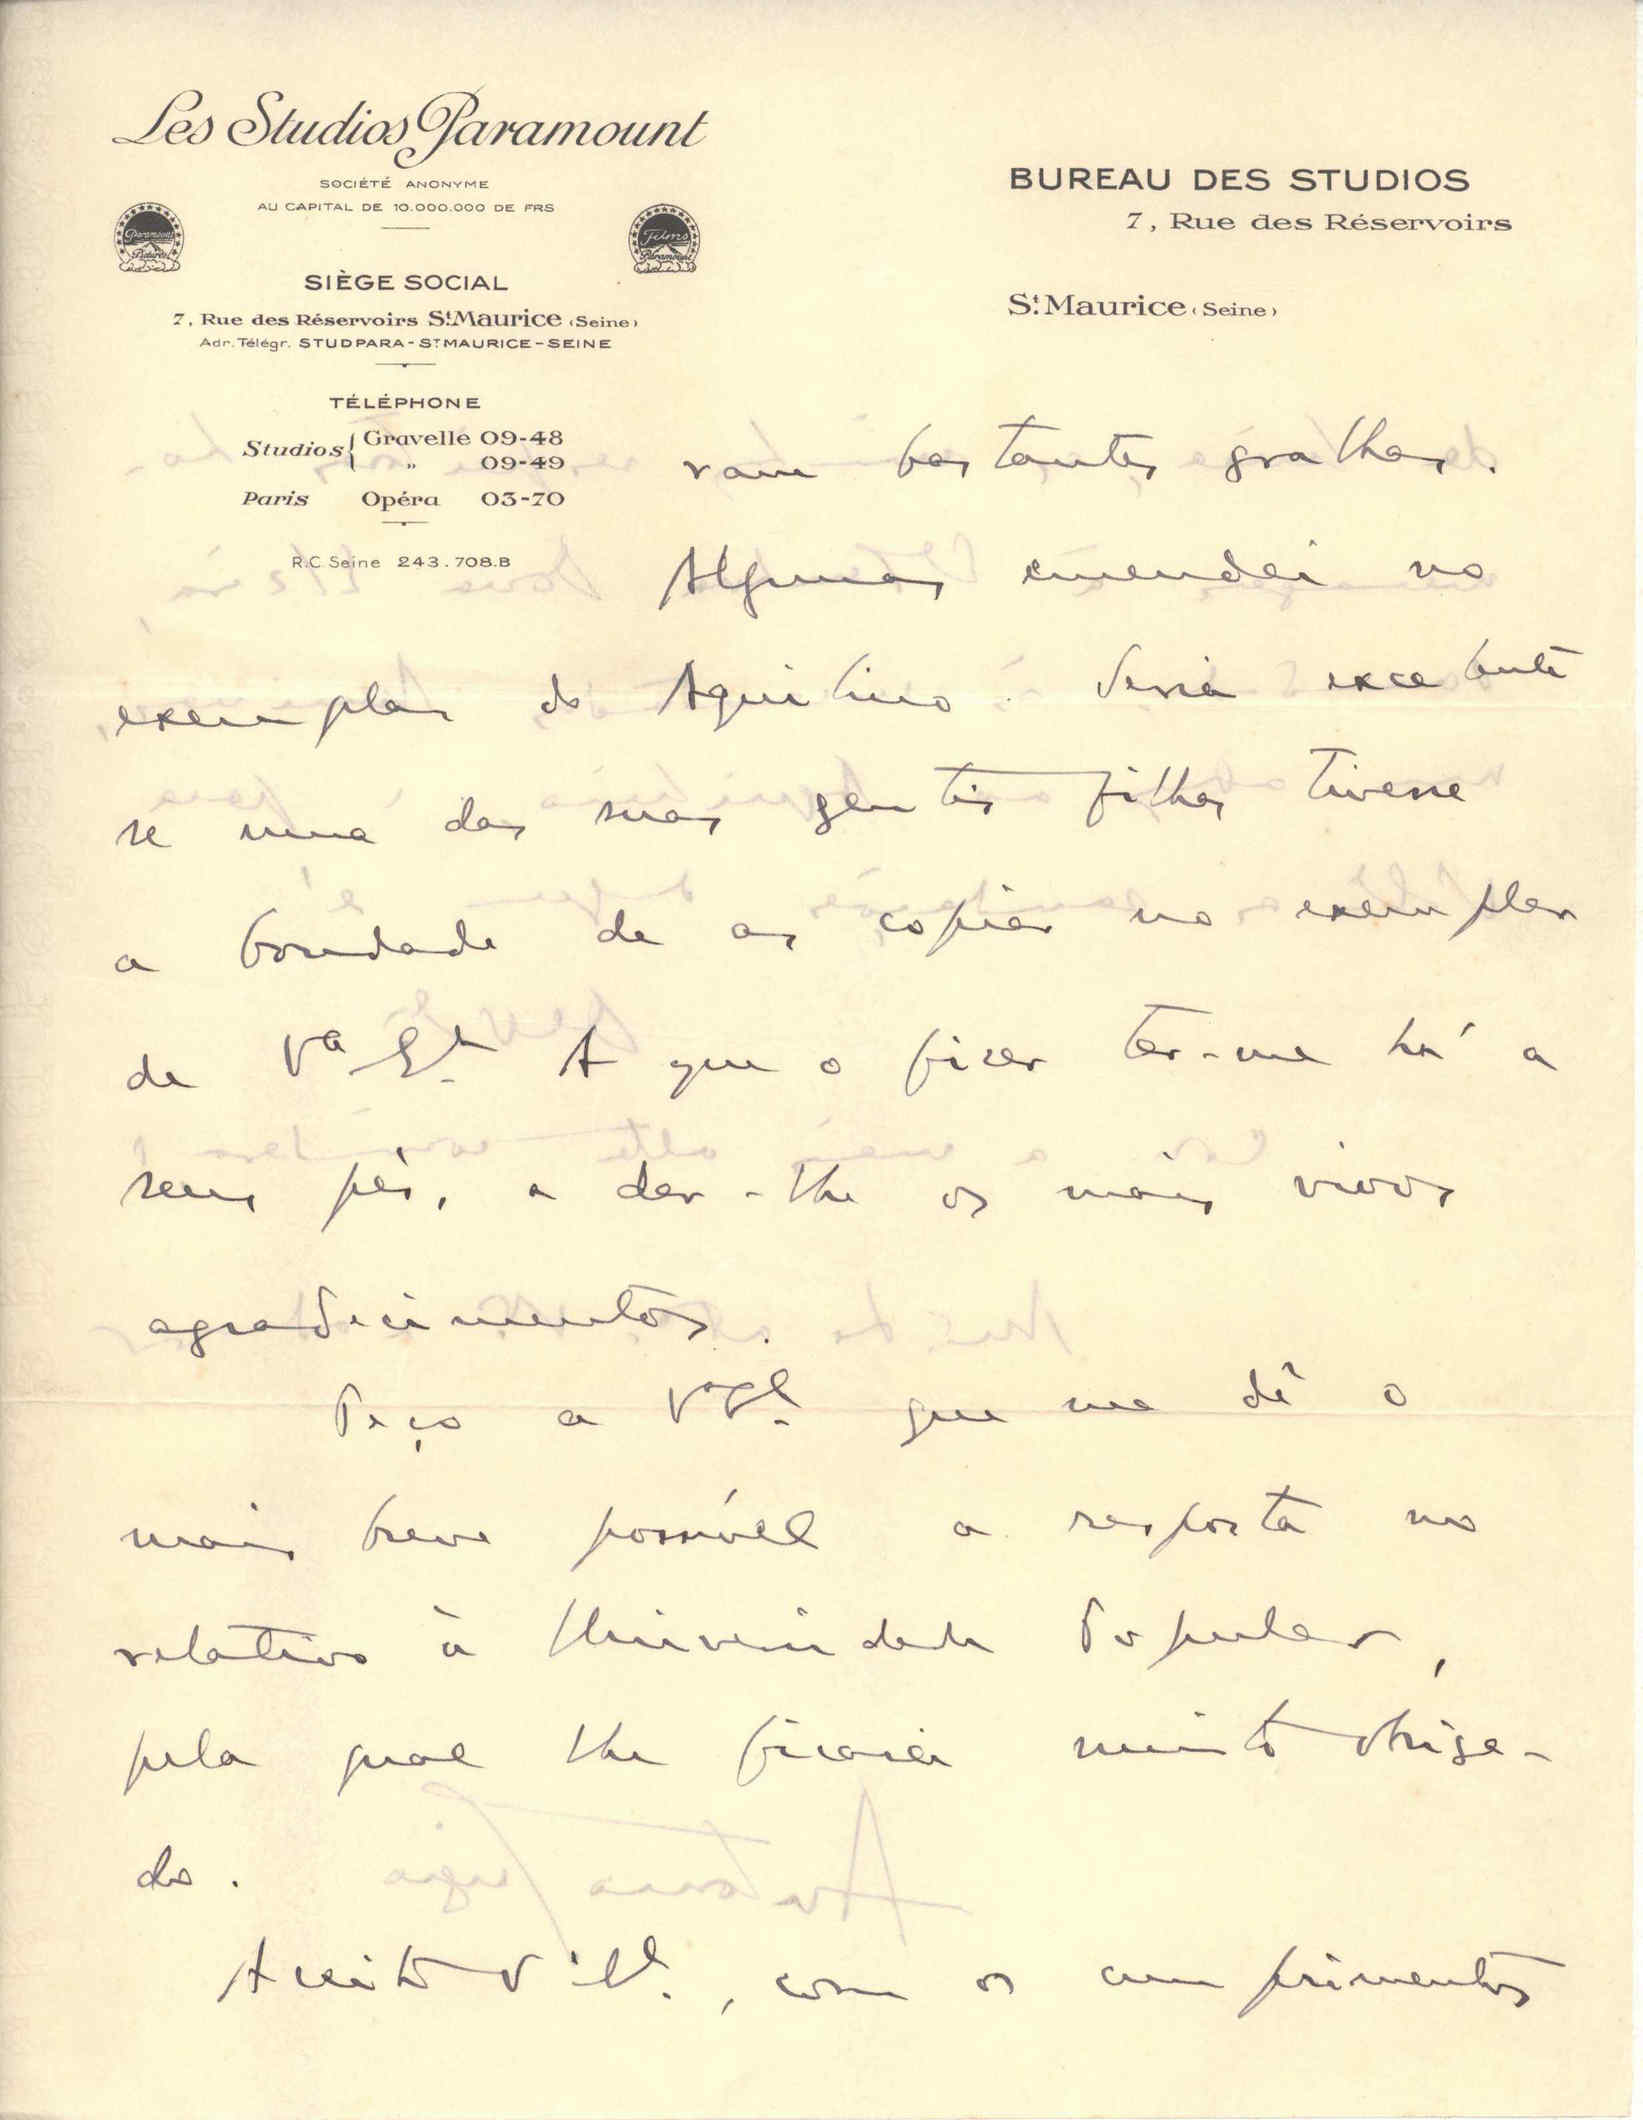 Les Studios Paramount
SOCIÉTÉ ANONYME
AU CAPITAL DE 10.000.000 DE FRS
Paramount Pictures
Films Paramount
SIÈGE SOCIAL
7, Rue des Réservoirs St. Maurice (Seine)
Adr. Télégr. STUDPARA-ST MAURICE-SEINE
TÉLÉPHONE
Studios { Gravelle 09-48
„ 09-49
Paris Opéra 03-70
R.C. Seine 243.708.B
BUREAU DES STUDIOS
7, Rue des Réservoirs
St. Maurice (Seine)
ram bastantes gralhas.
Algumas emendei no
exemplar do Aquilino. Seria excelente
se uma das suas gentis filhas tivesse
a bondade de as copiar no exemplar
de Vª Exª. A que o fizer ter-me há a
seus pés, a dar-lhe os mais vivos
agradecimentos.
Peço a V. Exª. que me dê o
mais breve possível a resposta no
relativo à Universidade Popular,
pela qual lhe ficarei muito obriga-
do.
Aceite V. Exª., com os cumprimentos